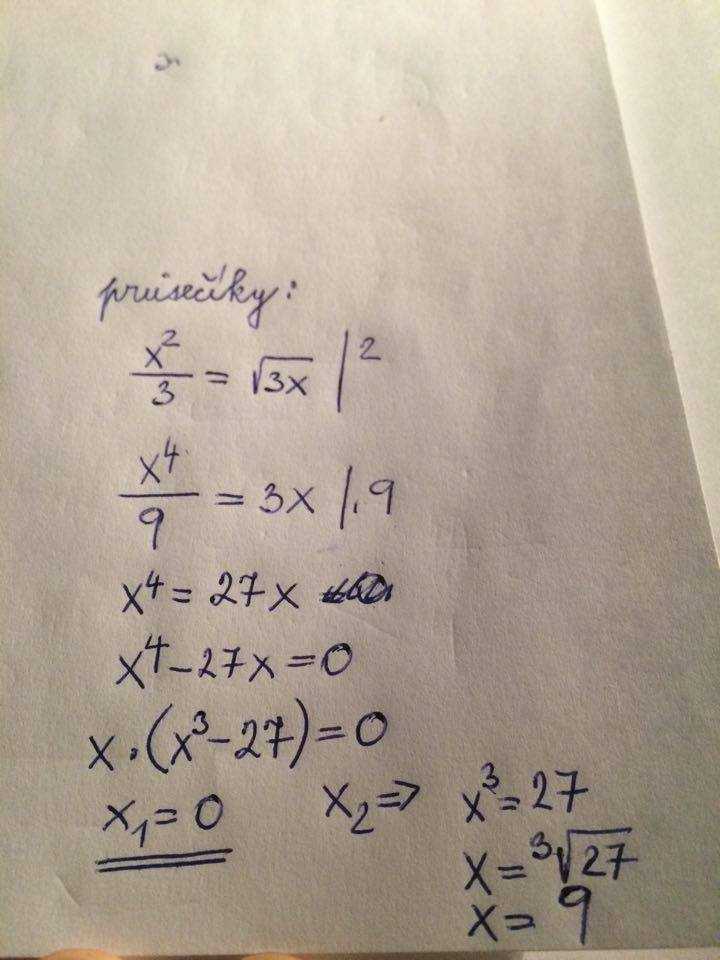 průsečíky:
x²/3 = √3x |²
x⁴/9 = 3x |.9
x⁴ = 27x
x⁴ - 27x = 0
x.(x³ - 27) = 0
x₁ = 0 x₂ ⇒ x³ = 27
x = ³√27
x = 9